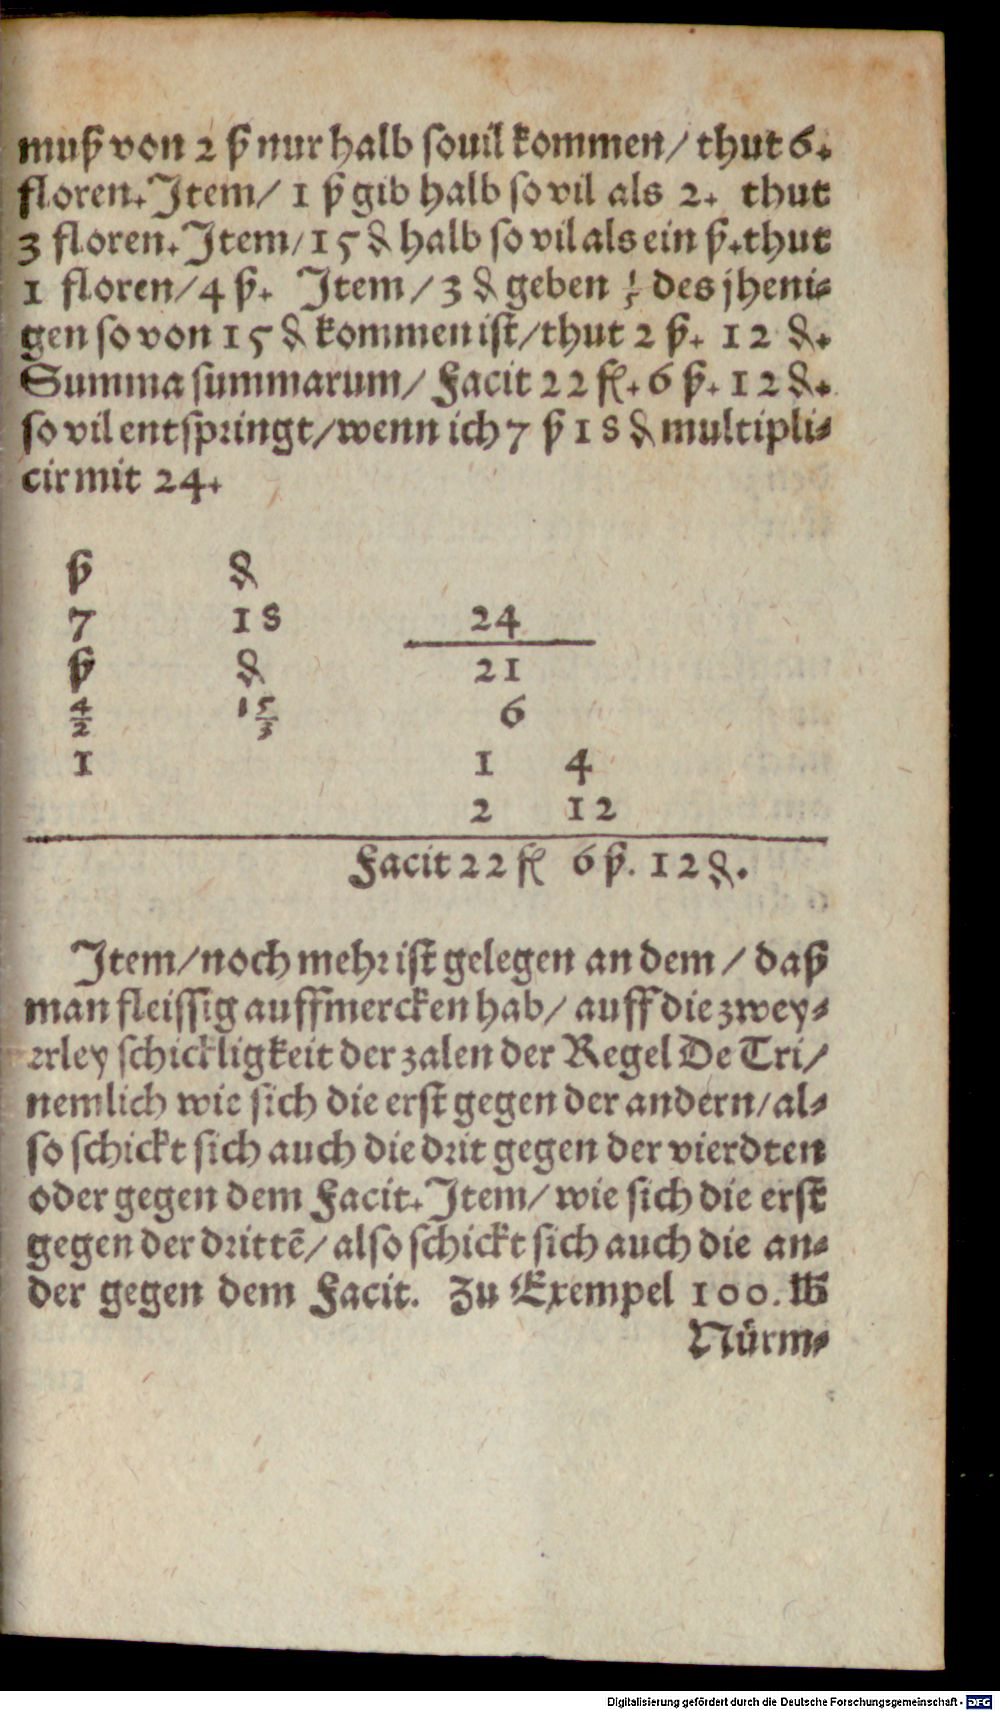 muß von 2 ß nur halb souil kommen/ thut 6.
floren. Item/ 1 ß gib halb so vil als 2. thut
3 floren. Item/ 15 ₰ halb so vil als ein ß. thut
1 floren/ 4 ß. Item/ 3 ₰ geben 1/5 des jheni⸗
gen so von 15 ₰ kommen ist/ thut 2 ß. 12 ₰.
Summa summarum/ Facit 22 fl. 6 ß. 12 ₰.
so vil entspringt/ wenn ich 7 ß 18 ₰ multipli⸗
cir mit 24.
ß ₰
7 18 24
ß ₰ 21
4/2 15/3 6
1 1 4
2 12
Facit 22 fl 6 ß. 12 ₰.
Item/ noch mehr ist gelegen an dem/ daß
man fleissig auffmercken hab/ auff die zwey⸗
erley schickligkeit der zalen der Regel De Tri/
nemlich wie sich die erst gegen der andern/ al⸗
so schickt sich auch die drit gegen der vierdten
oder gegen dem Facit. Item/ wie sich die erst
gegen der drittē/ also schickt sich auch die an⸗
der gegen dem Facit. Zu Exempel 100. ℔
Nürm⸗
Digitalisierung gefördert durch die Deutsche Forschungsgemeinschaft - DFG